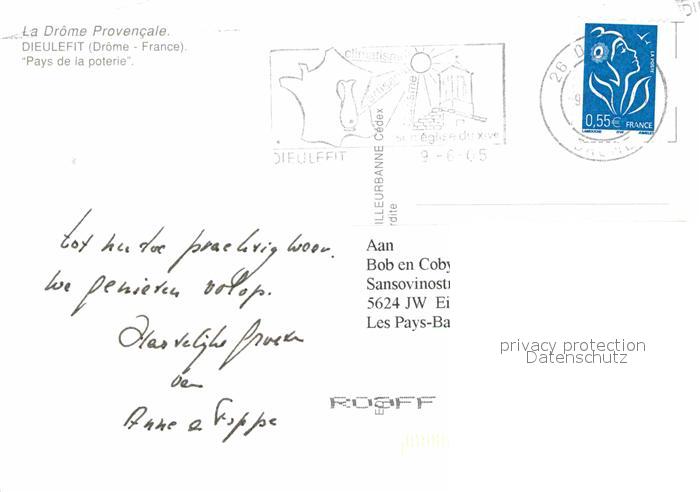 La Drôme Provençale.
DIEULEFIT (Drôme - France).
"Pays de la poterie".
climatisme
DIEULEFIT
9-6-05
26 D
0,55€ FRANCE
LA POSTE
ILLEURBANNE Cédex
rdite
tot nu toe prachtig weer.
we genieten volop.
Hartelijke groeten
van
Anne en Foppe
Aan
Bob en Coby
Sansovinostr
5624 JW Ei
Les Pays-Ba
privacy protection
Datenschutz